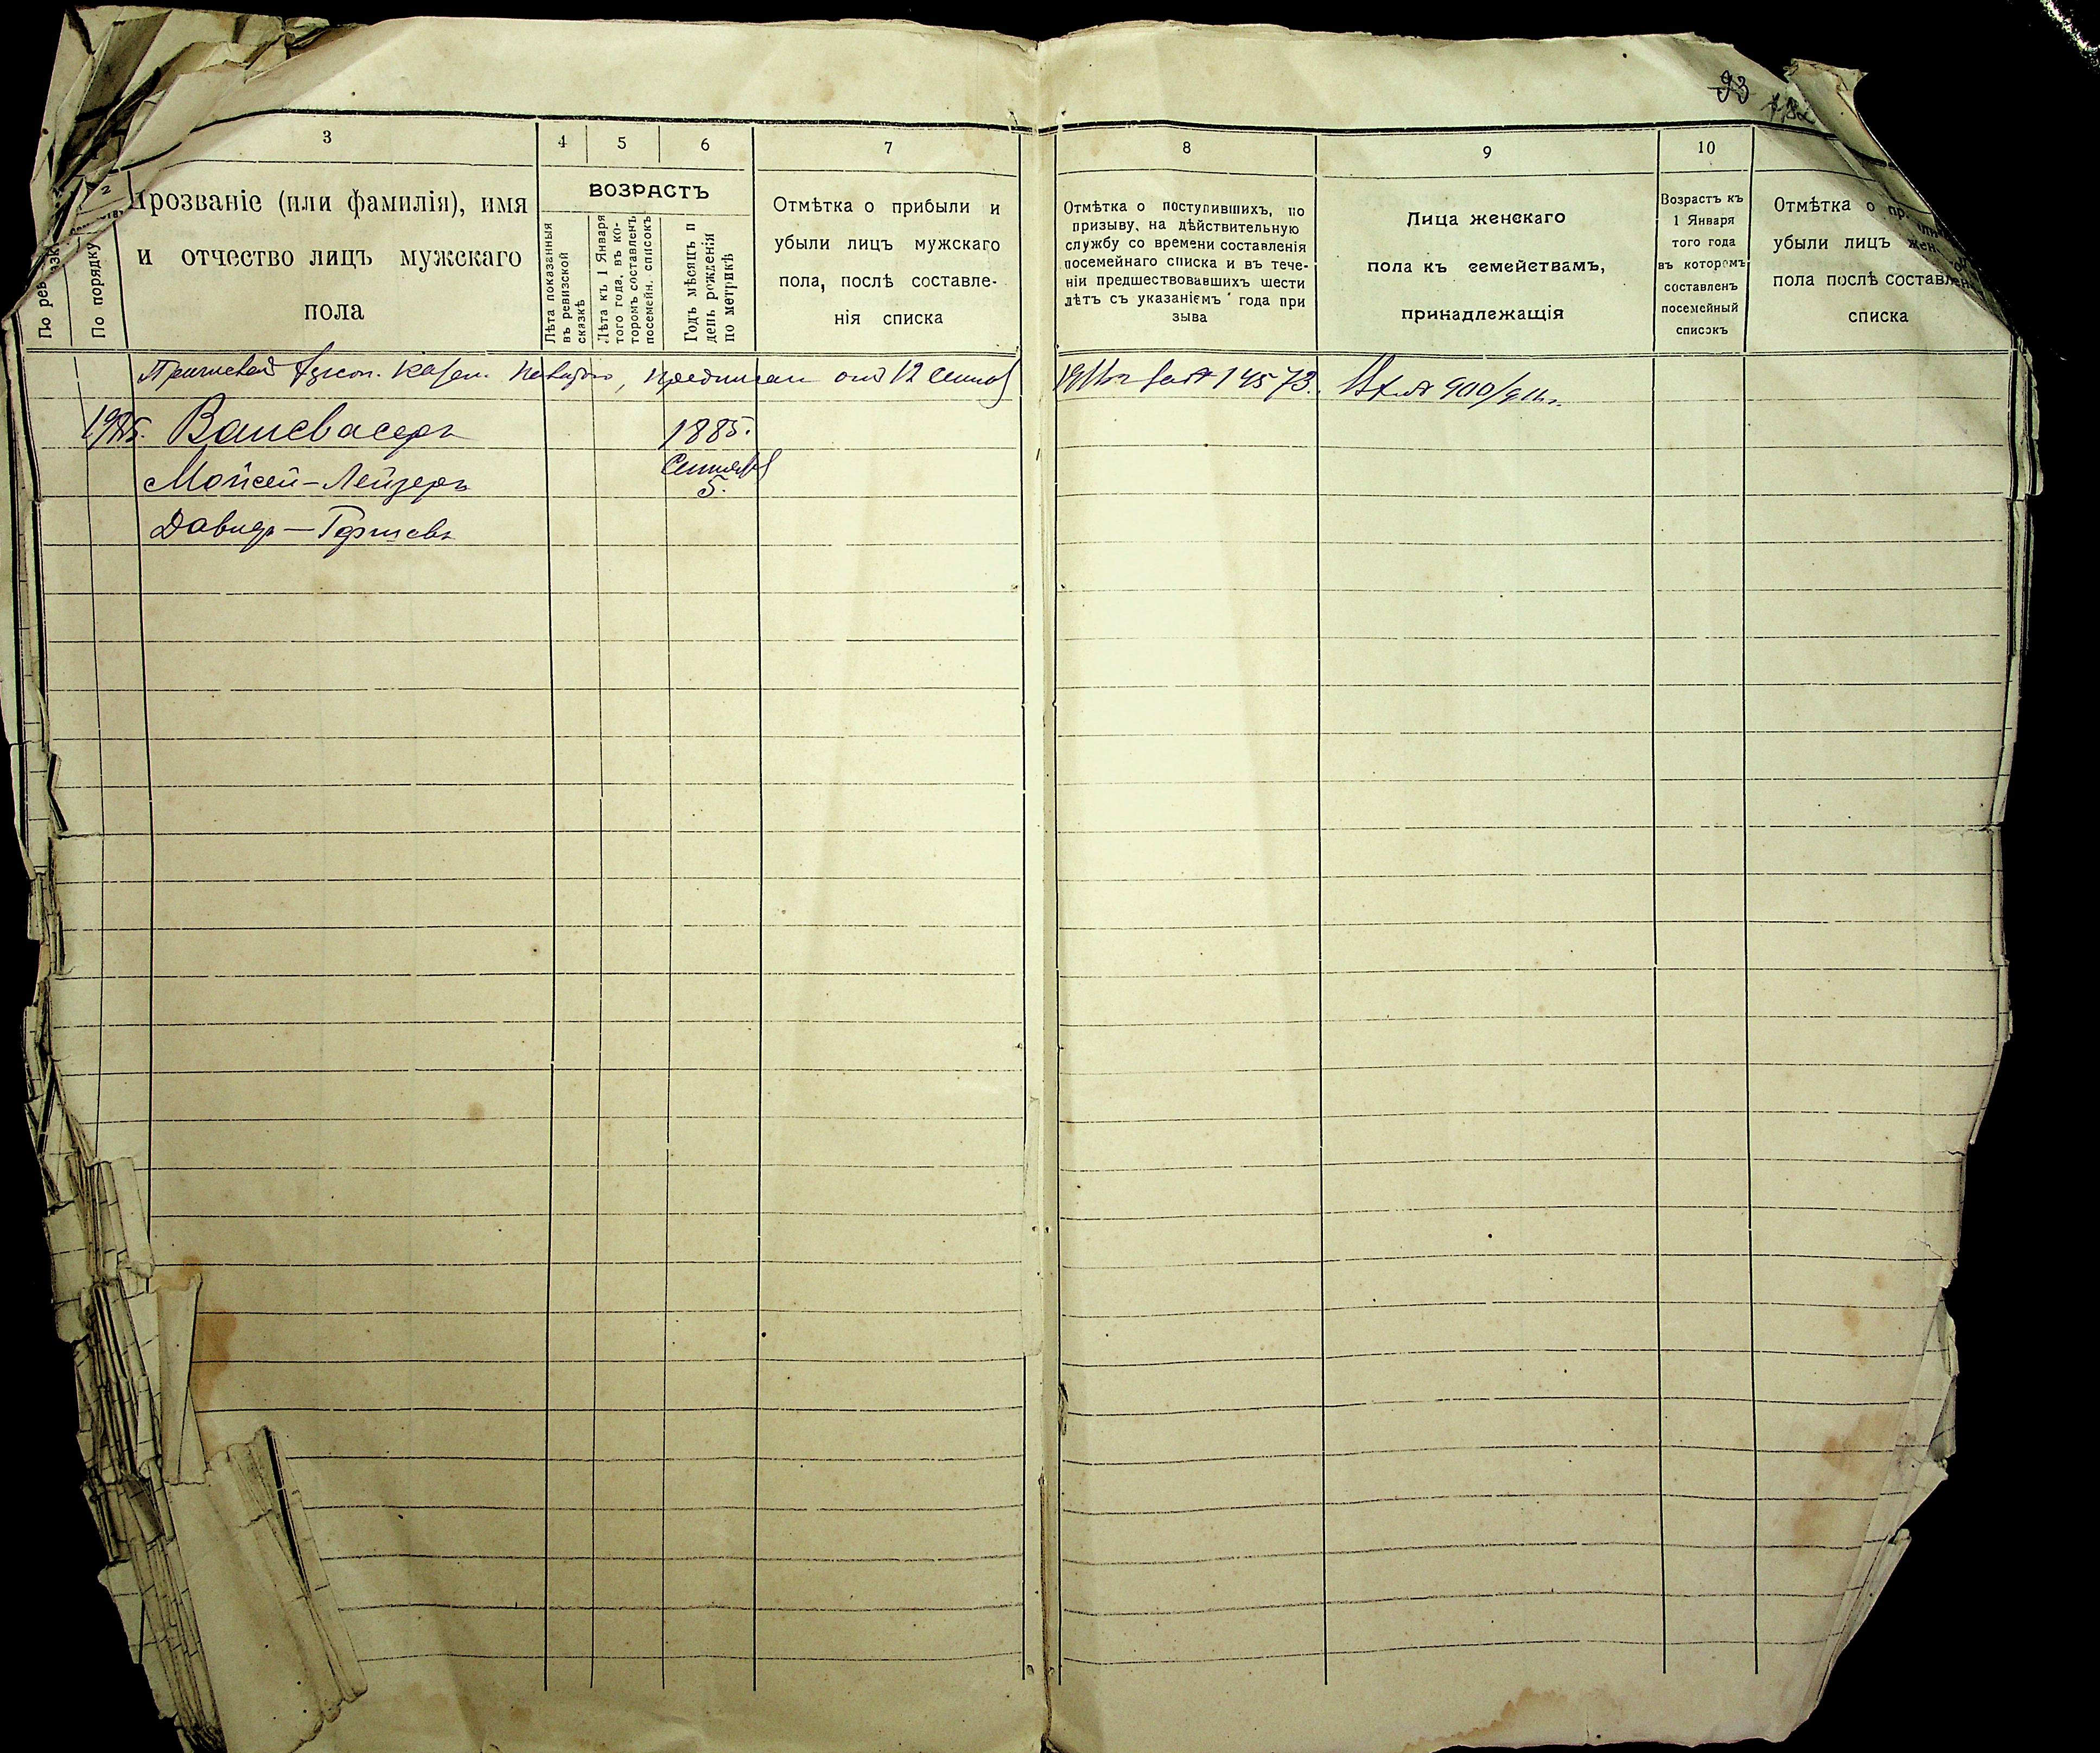 93
3
4
5
6
7
8
9
10
2
По порядку
Прозваніе (или фамилія), имя
и отчество лицъ мужскаго
пола
ВОЗРАСТЪ
Лѣта показанныя
въ ревизской
сказкѣ
Лѣта къ 1 Января
того года, въ ко-
торомъ составленъ
посемейн. списокъ
Годъ мѣсяцъ и
день рожденія
по метрикѣ
Отмѣтка о прибыли и
убыли лицъ мужскаго
пола, послѣ составле-
нія списка
Отмѣтка о поступившихъ, по
призыву, на дѣйствительную
службу со времени составленія
посемейнаго списка и въ тече-
ніи предшествовавшихъ шести
лѣтъ съ указаніемъ года при
зыва
Лица женскаго
пола къ семействамъ,
принадлежащія
Возрастъ къ
1 Января
того года
въ которомъ
составленъ
посемейный
списокъ
Отмѣтка о
убыли лицъ
пола послѣ
списка
казен. предписан. отъ 12 Сентяб 1911 г. за № 14573.
1885.
Мойсей-Лейзеръ
Сентября
5.
Давидъ-Гершевъ